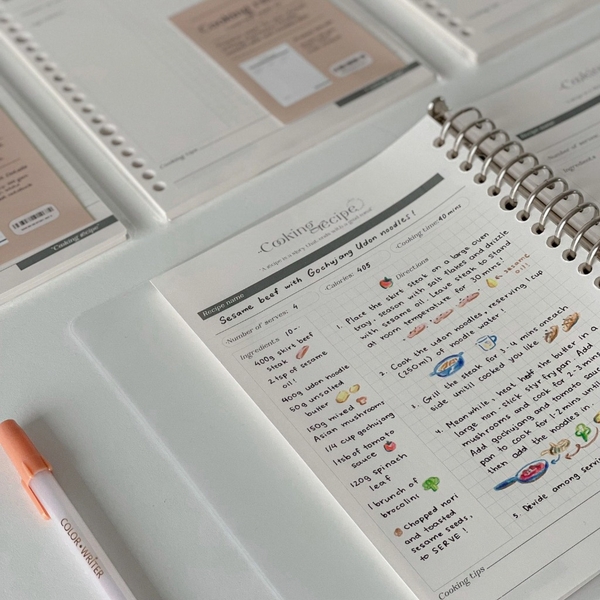 Cooking Recipe
"A recipe is a story that ends with a good meal"
Recipe name
Sesame beef with Gochujang Udon noodles!
Number of serves: 4
Calories: 405
Cooking time: 40 mins
Ingredients
400g skirt beef
steak
2 tsp of sesame
oil!
400g udon noodle
50g unsalted
butter
150g mixed
Asian mushrooms
1/4 cup gochujang
1 tsb of tomato
sauce
120g spinach
leaf
1 brunch of
brocolini
Chopped nori
and toasted
sesame seeds,
to SERVE!
Directions
1. Place the skirt steak on a large oven
tray, season with salt flakes and drizzle
with sesame oil. Leave steak to stand
at room temperature for 30 mins.
sesame
oil
2. Cook the udon noodles, reserving 1 cup
(250ml) of noodle water
3. Grill the steak for 3-4 mins on each
side until cooked you like
4. Meanwhile, heat half the butter in a
large non-stick styr frypan. Add
mushrooms and cook for 2-3 mins
Add gochujang and tomato sauce
pan to cook for 1-2 min, until
then add the noodles in
5. Devide among servin
Cooking tips
COLOR • WRITER
"Cooking Recipe"
Cooking tips